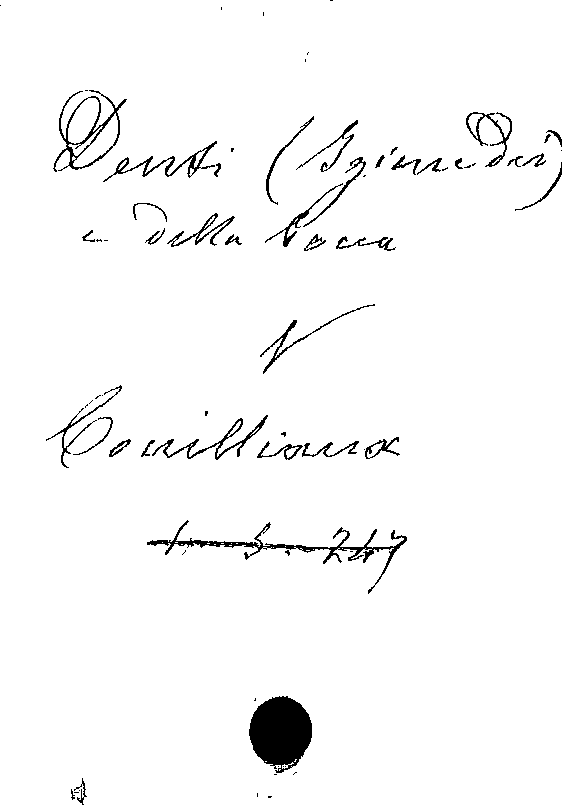 Denti (Igiene dei)
e della bocca
V
Couilliaux
1. 5. 247